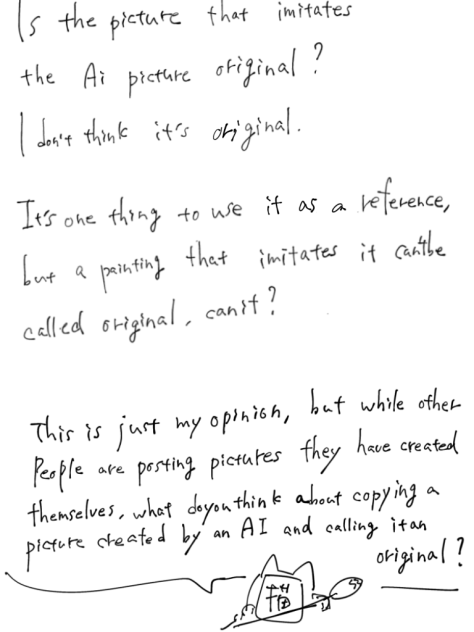 Is the picture that imitates
the Ai picture original?
I don't think it's original.
It's one thing to use it as a reference,
but a painting that imitates it can'tbe
called original, can it?
This is just my opinion, but while other
People are posting pictures they have created
themselves, what doyouthink about copying a
picture created by an AI and calling itan
original?